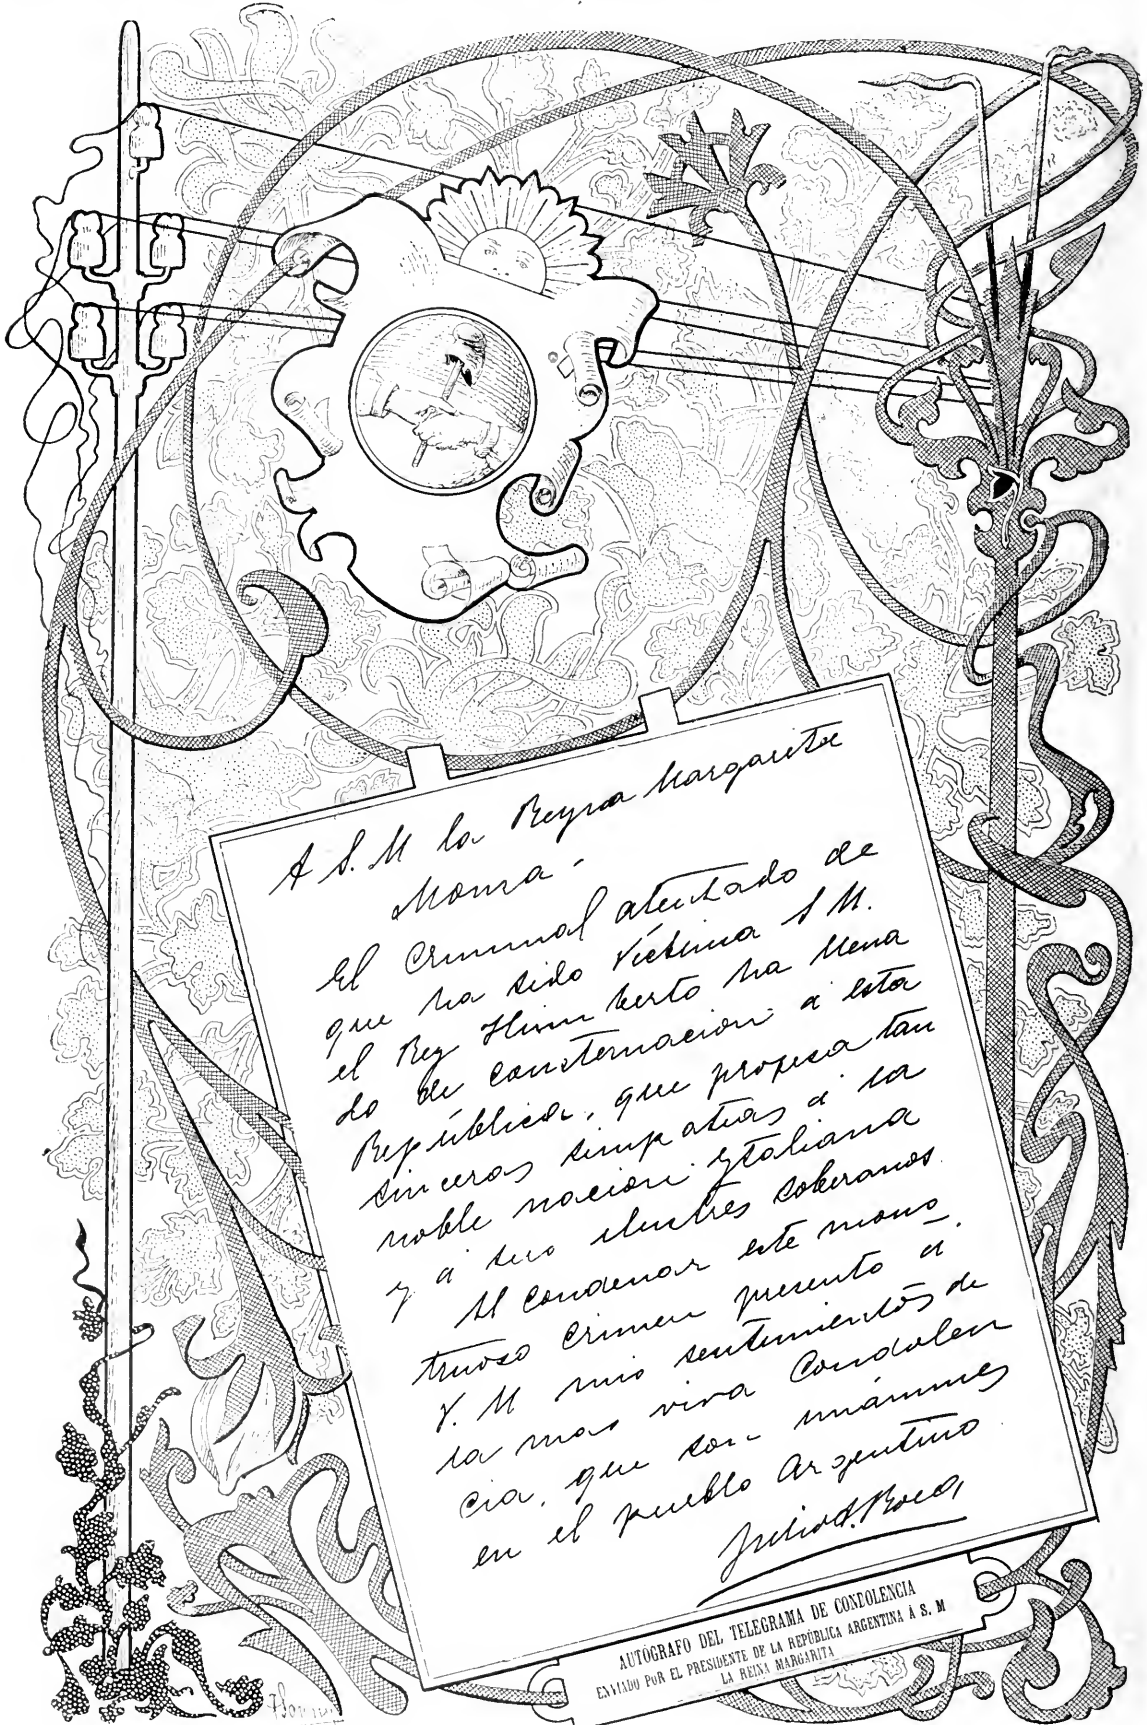 A S. M la Reyna Margarita
Monza
El Criminal atentado de
que ha sido víctima S M.
el Rey Humberto ha llena
do de consternación á esta
República, que profesa tan
sinceras simpatias á la
noble nación Ytaliana
y á sus ilustres soberanos
Al condenar este mons
truoso crimen presento á
V. M mis sentimientos de
la mas viva Condolen
cia, que son unánimes
en el pueblo Argentino
Julio A. Roca
AUTÓGRAFO DEL TELEGRAMA DE CONDOLENCIA
ENVIADO POR EL PRESIDENTE DE LA REPÚBLICA ARGENTINA Á S. M
LA REINA MARGARITA